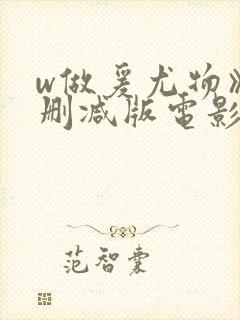 w做爰尤物》
删减版电影
范智囊